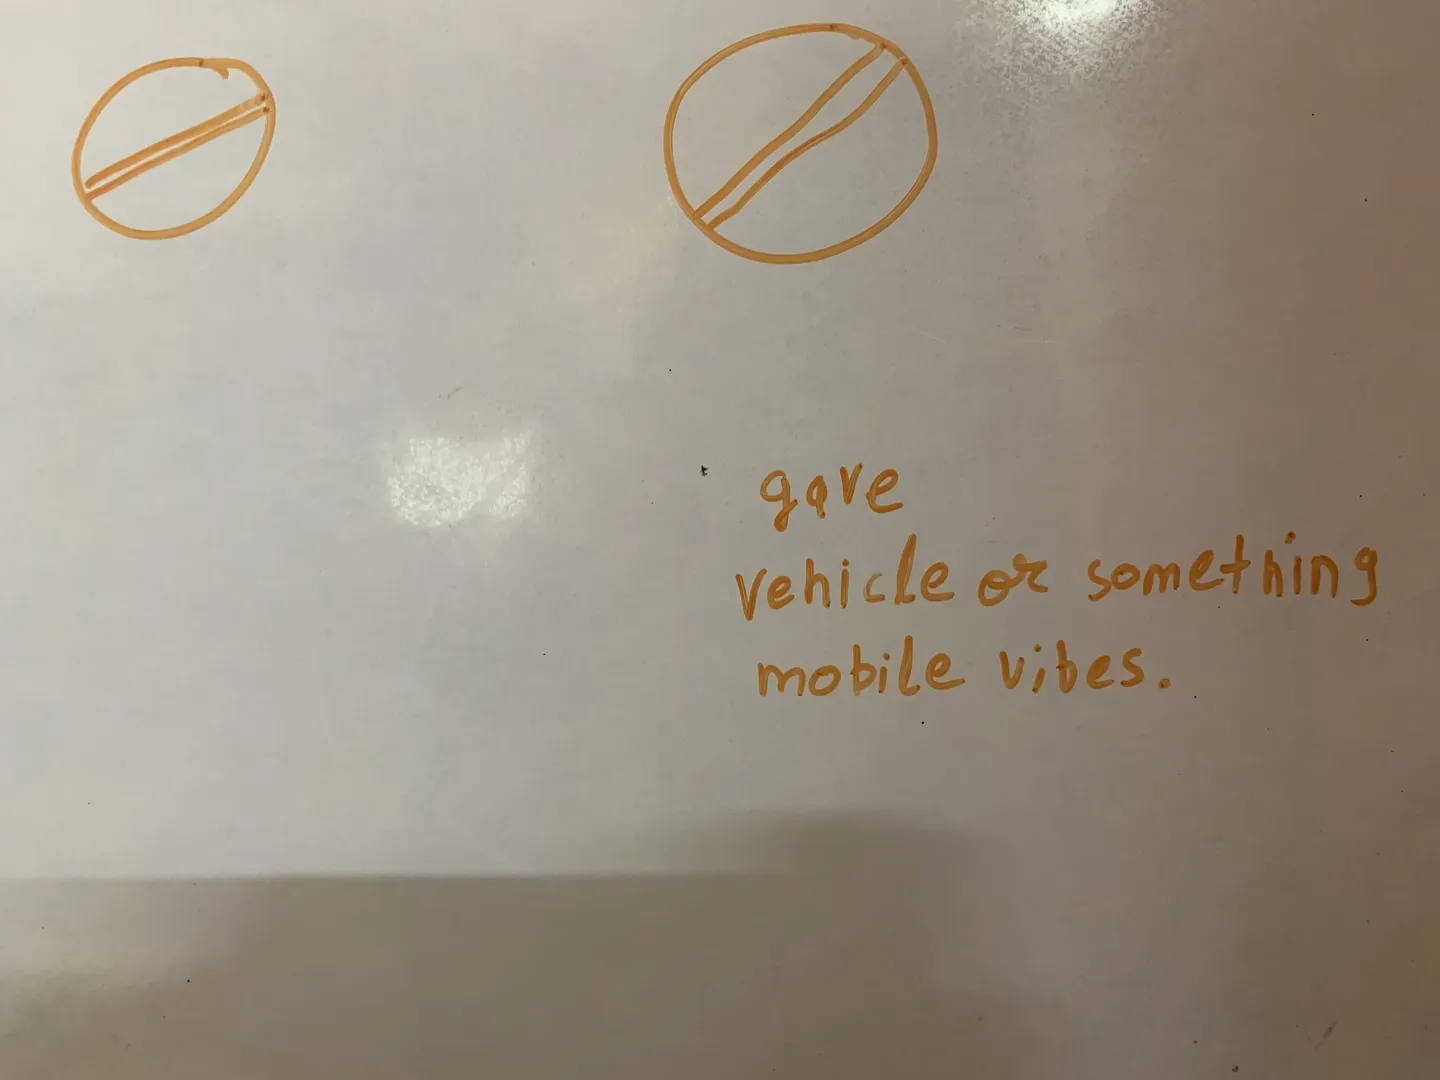 gave
vehicle or something
mobile vibes.